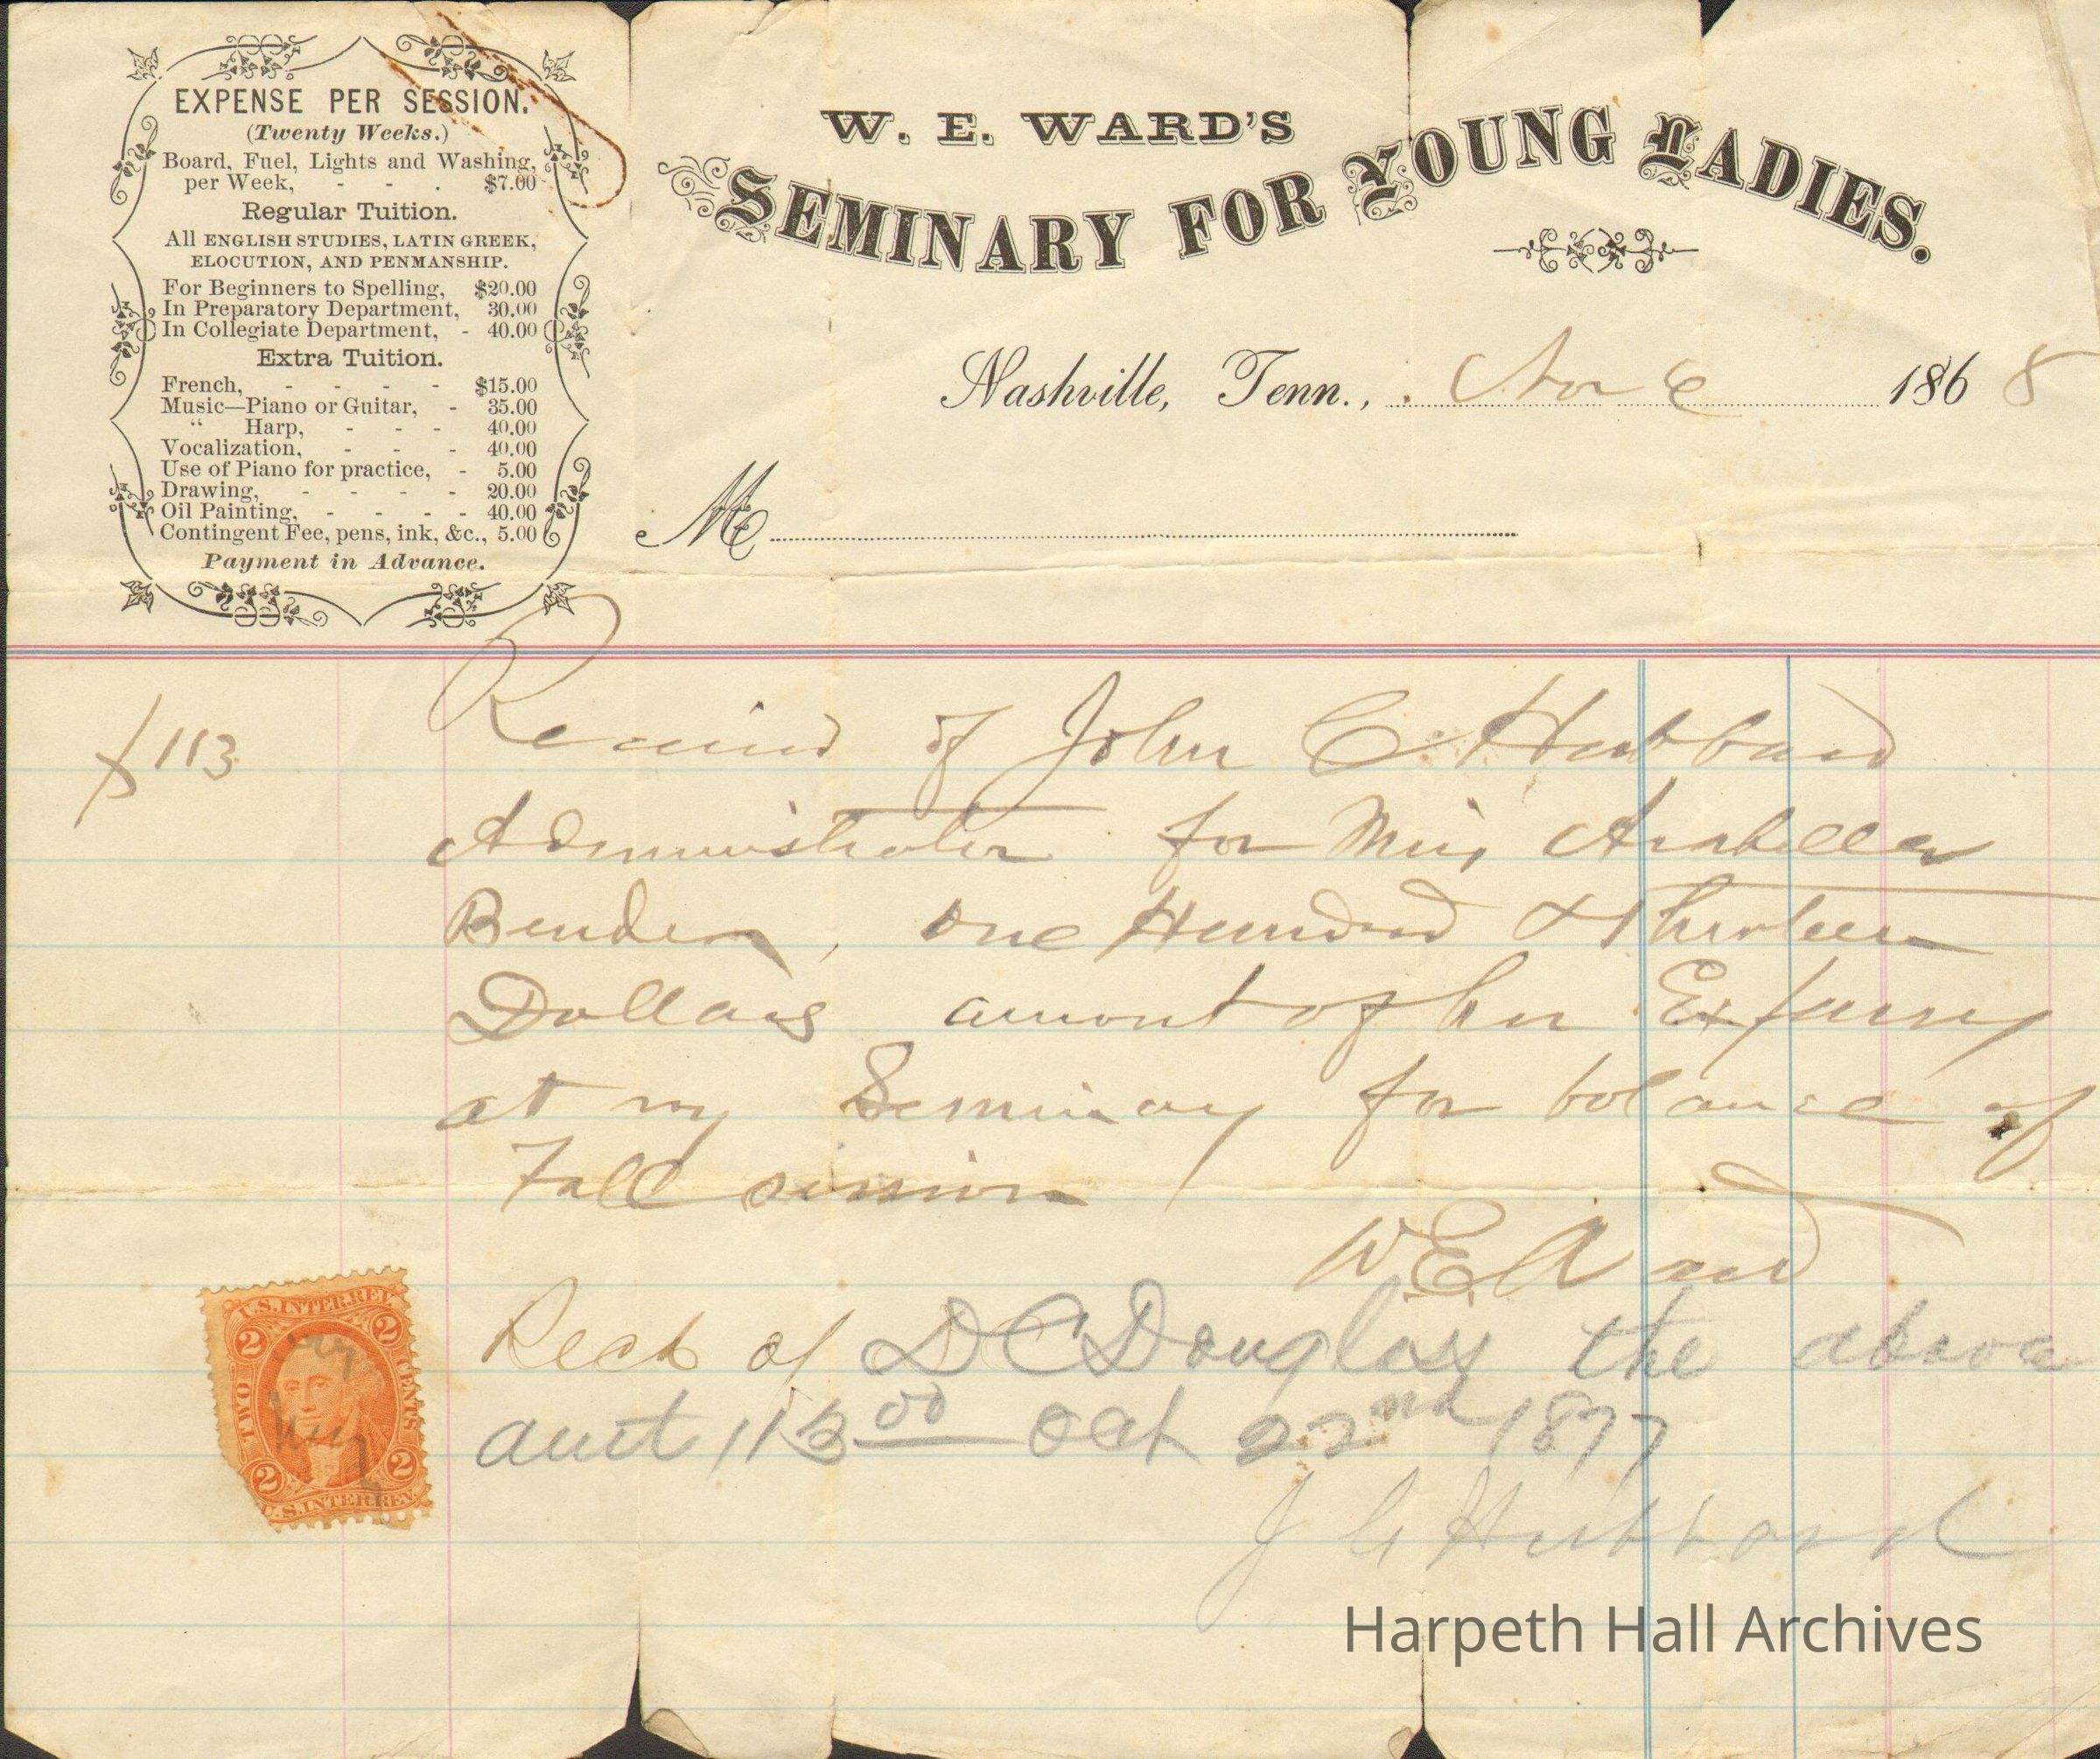 EXPENSE PER SESSION.
(Twenty Weeks.)
Board, Fuel, Lights and Washing,
per Week, - - . $7.00
Regular Tuition.
All ENGLISH STUDIES, LATIN GREEK,
ELOCUTION, AND PENMANSHIP.
For Beginners to Spelling, $20.00
In Preparatory Department, 30.00
In Collegiate Department, - 40.00
Extra Tuition.
French, - - - - $15.00
Music—Piano or Guitar, - 35.00
“ Harp, - - - 40.00
Vocalization, - - - 40.00
Use of Piano for practice, - 5.00
Drawing, - - - - 20.00
Oil Painting, - - - - 40.00
Contingent Fee, pens, ink, &c., 5.00
Payment in Advance.
W. E. WARD'S
SEMINARY FOR YOUNG LADIES.
Nashville, Tenn., Nov 6 1868
M
$113 Received of John C Hubbard
Administrator for Miss Arabella
Bender, One Hundred & thirteen
Dollars amount of her Expenses
at my Seminary for balance of
Fall session
W E Ward
Recd of D C Douglass the above
amt 113 00 Oct 22nd 1877
J C Hubbard
U.S. INTER. REV.
2 2
TWO CENTS
2 2
U.S. INTER. REV.
Harpeth Hall Archives